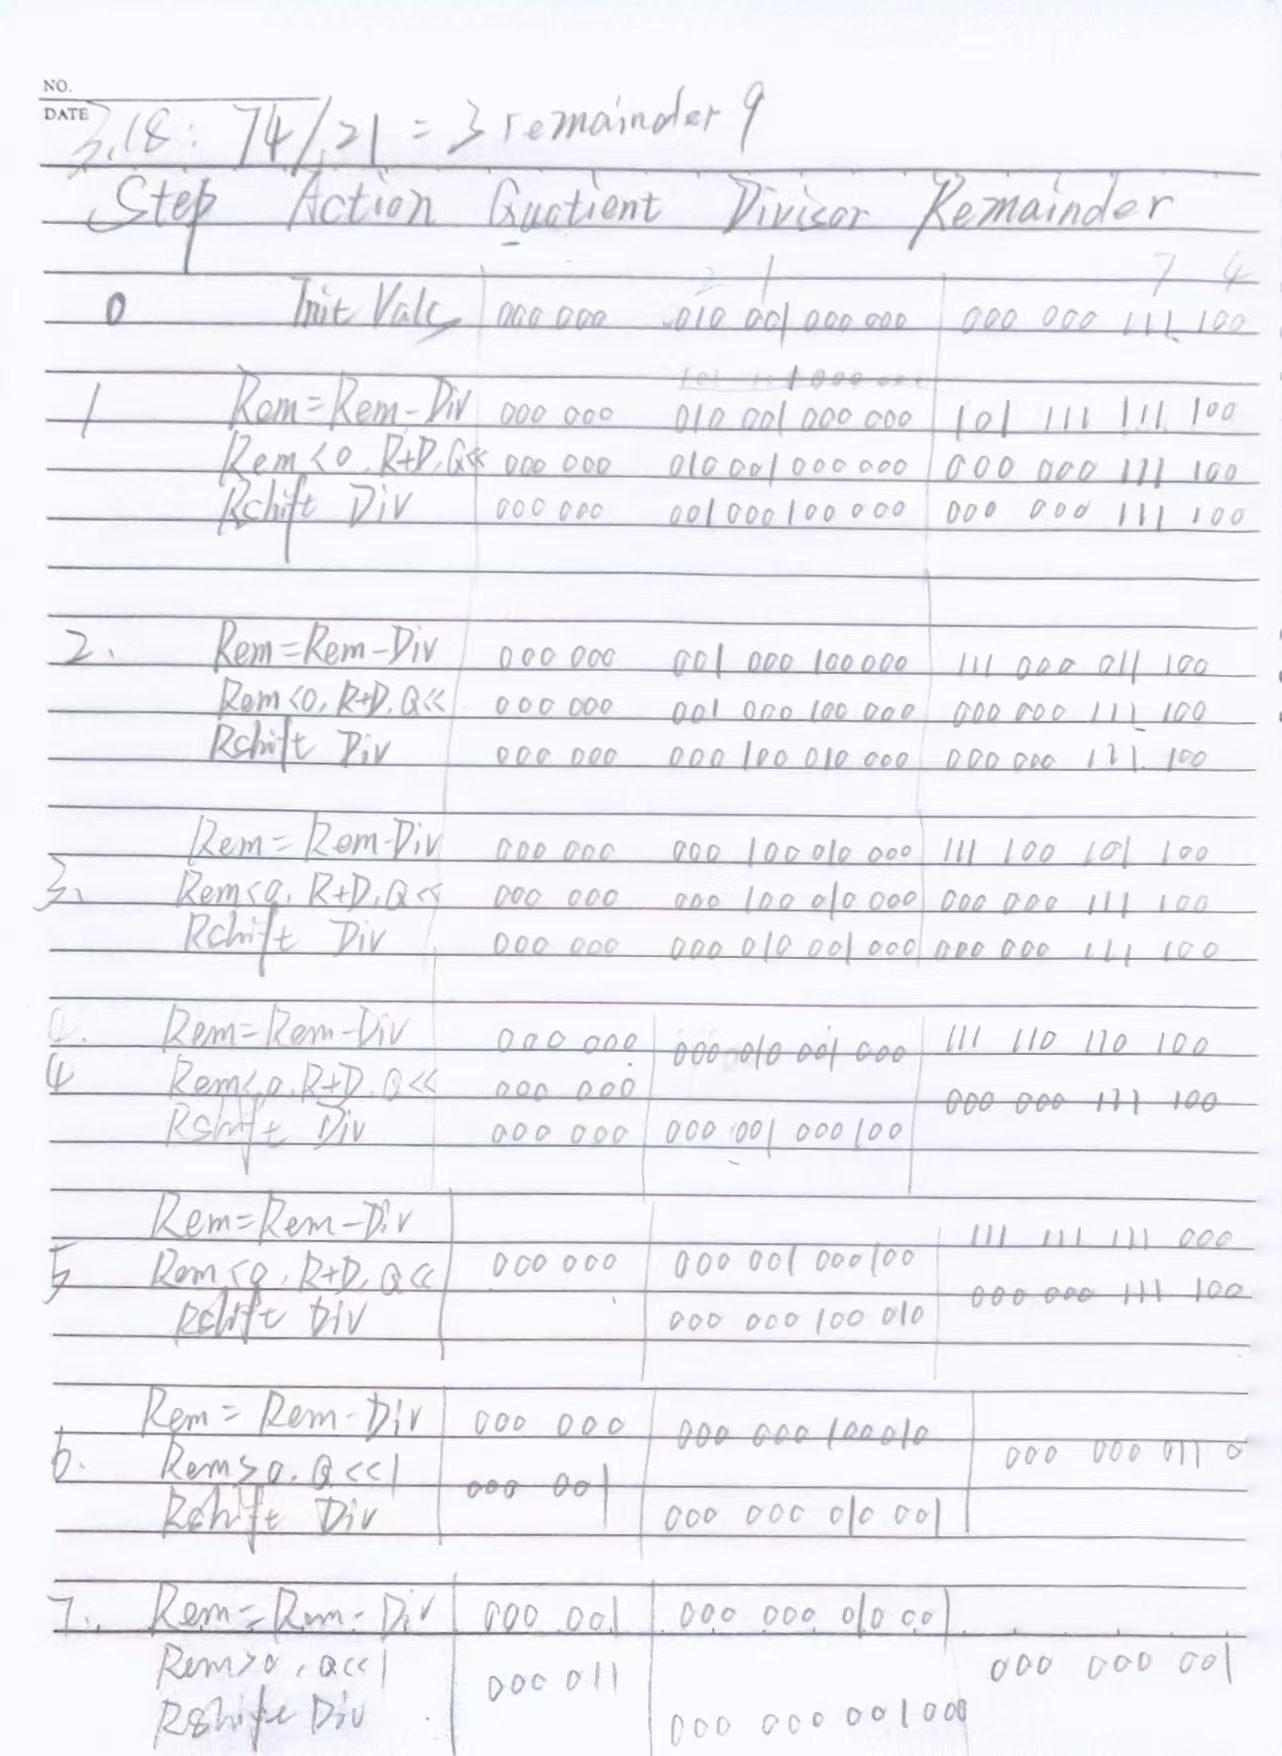 NO.
DATE
3.18: 74/21 = 3 remainder 9
Step Action Quatient Divisor Remainder
2 1 7 4
0 Init Vals 000 000 010 001 000 000 000 000 111 100
1 Rem=Rem-Div 000 000 010 001 000 000 101 111 111 100
Rem<0, R+D, Q<< 000 000 010 001 000 000 000 000 111 100
Rshift Div 000 000 001 000 100 000 000 000 111 100
2. Rem=Rem-Div 000 000 001 000 100 000 111 000 011 100
Rem<0, R+D, Q<< 000 000 001 000 100 000 000 000 111 100
Rshift Div 000 000 000 100 010 000 000 000 111 100
Rem=Rem-Div 000 000 000 100 010 000 111 100 101 100
3. Rem<0, R+D, Q<< 000 000 000 100 010 000 000 000 111 100
Rshift Div 000 000 000 010 001 000 000 000 111 100
Rem=Rem-Div 000 000 000 010 001 000 111 110 110 100
4 Rem<0, R+D, Q<< 000 000 000 000 111 100
Rshift Div 000 000 000 001 000 100
Rem=Rem-Div 111 111 111 000
5 Rem<0, R+D, Q<< 000 000 000 001 000 100 000 000 111 100
Rshift Div 000 000 100 010
Rem=Rem-Div 000 000 000 000 100 010
6. Rem>0, Q<<1 000 001 000 000 011 0
Rshift Div 000 000 010 001
7. Rem=Rem-Div 000 001 000 000 010 001
Rem>0, Q<<1 000 011 000 000 001
Rshift Div 000 000 001 000